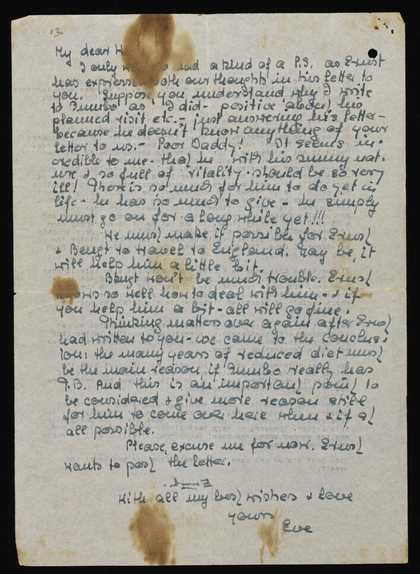 13.
My dear H
I only        add a kind of a P.S. as Ernst
has expressed both our thoughts in his letter to
you. I suppose you understand why I write
to Jumbo as I did - positive about his
planned visit etc. - just answering his letter -
because he doesn't know anything of your
letter to us. - Poor Daddy! It seems in-
credible to me that he with his sunny nat-
ure & so full of vitality should be so very
ill! There is so much for him to do yet in
life - he has so much to give - he simply
must go on for a long while yet!!!
We must make it possible for Ernst
& Bengt to travel to England. May be it
will help him a little bit.
Bengt won't be much trouble. Ernst
knows so well how to deal with him - & if
you help him a bit - all will go fine.
Thinking matters over again after Ernst
had written to you - we came to the conclus-
ion: the many years of reduced diet must
be the main reason if Jumbo really has
T.B. And this is an important point to
be considered & give more reason still
for him to come over here when & if at
all possible.
Please, excuse me for now. Ernst
wants to post the letter.
With all my best wishes & love
yours
Eve